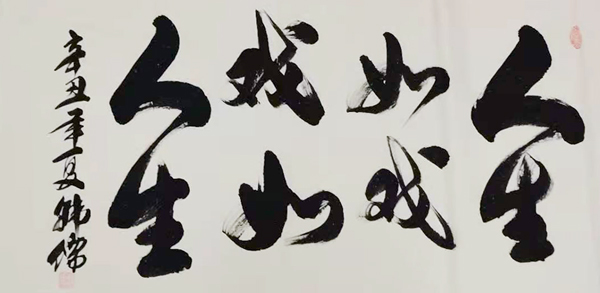 人生
如戏
戏如
人生
辛丑年夏